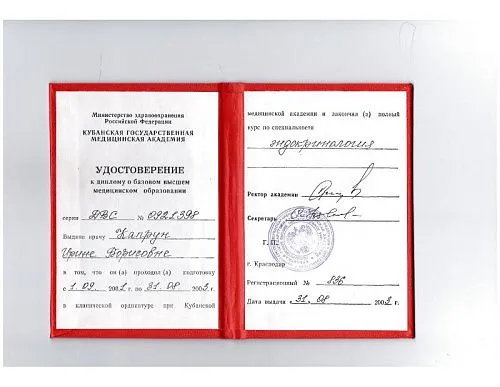 Министерство здравоохранения
Российской Федерации
КУБАНСКАЯ ГОСУДАРСТВЕННАЯ
МЕДИЦИНСКАЯ АКАДЕМИЯ
УДОСТОВЕРЕНИЕ
к диплому о базовом высшем
медицинском образовании
серия ДВС № 0921398
Выдано врачу Капрун
Ирине Борисовне
в том, что он (а) проходил (а) подготовку
с 1.09 2001 г. по 31.08 2003 г.
в клинической ординатуре при Кубанской
медицинской академии и закончил (а) полный
курс по специальности
эндокринология
Ректор академии
Секретарь
Г. П.
г. Краснодар
Регистрационный № 836
Дата выдачи 31.08 2003 г.